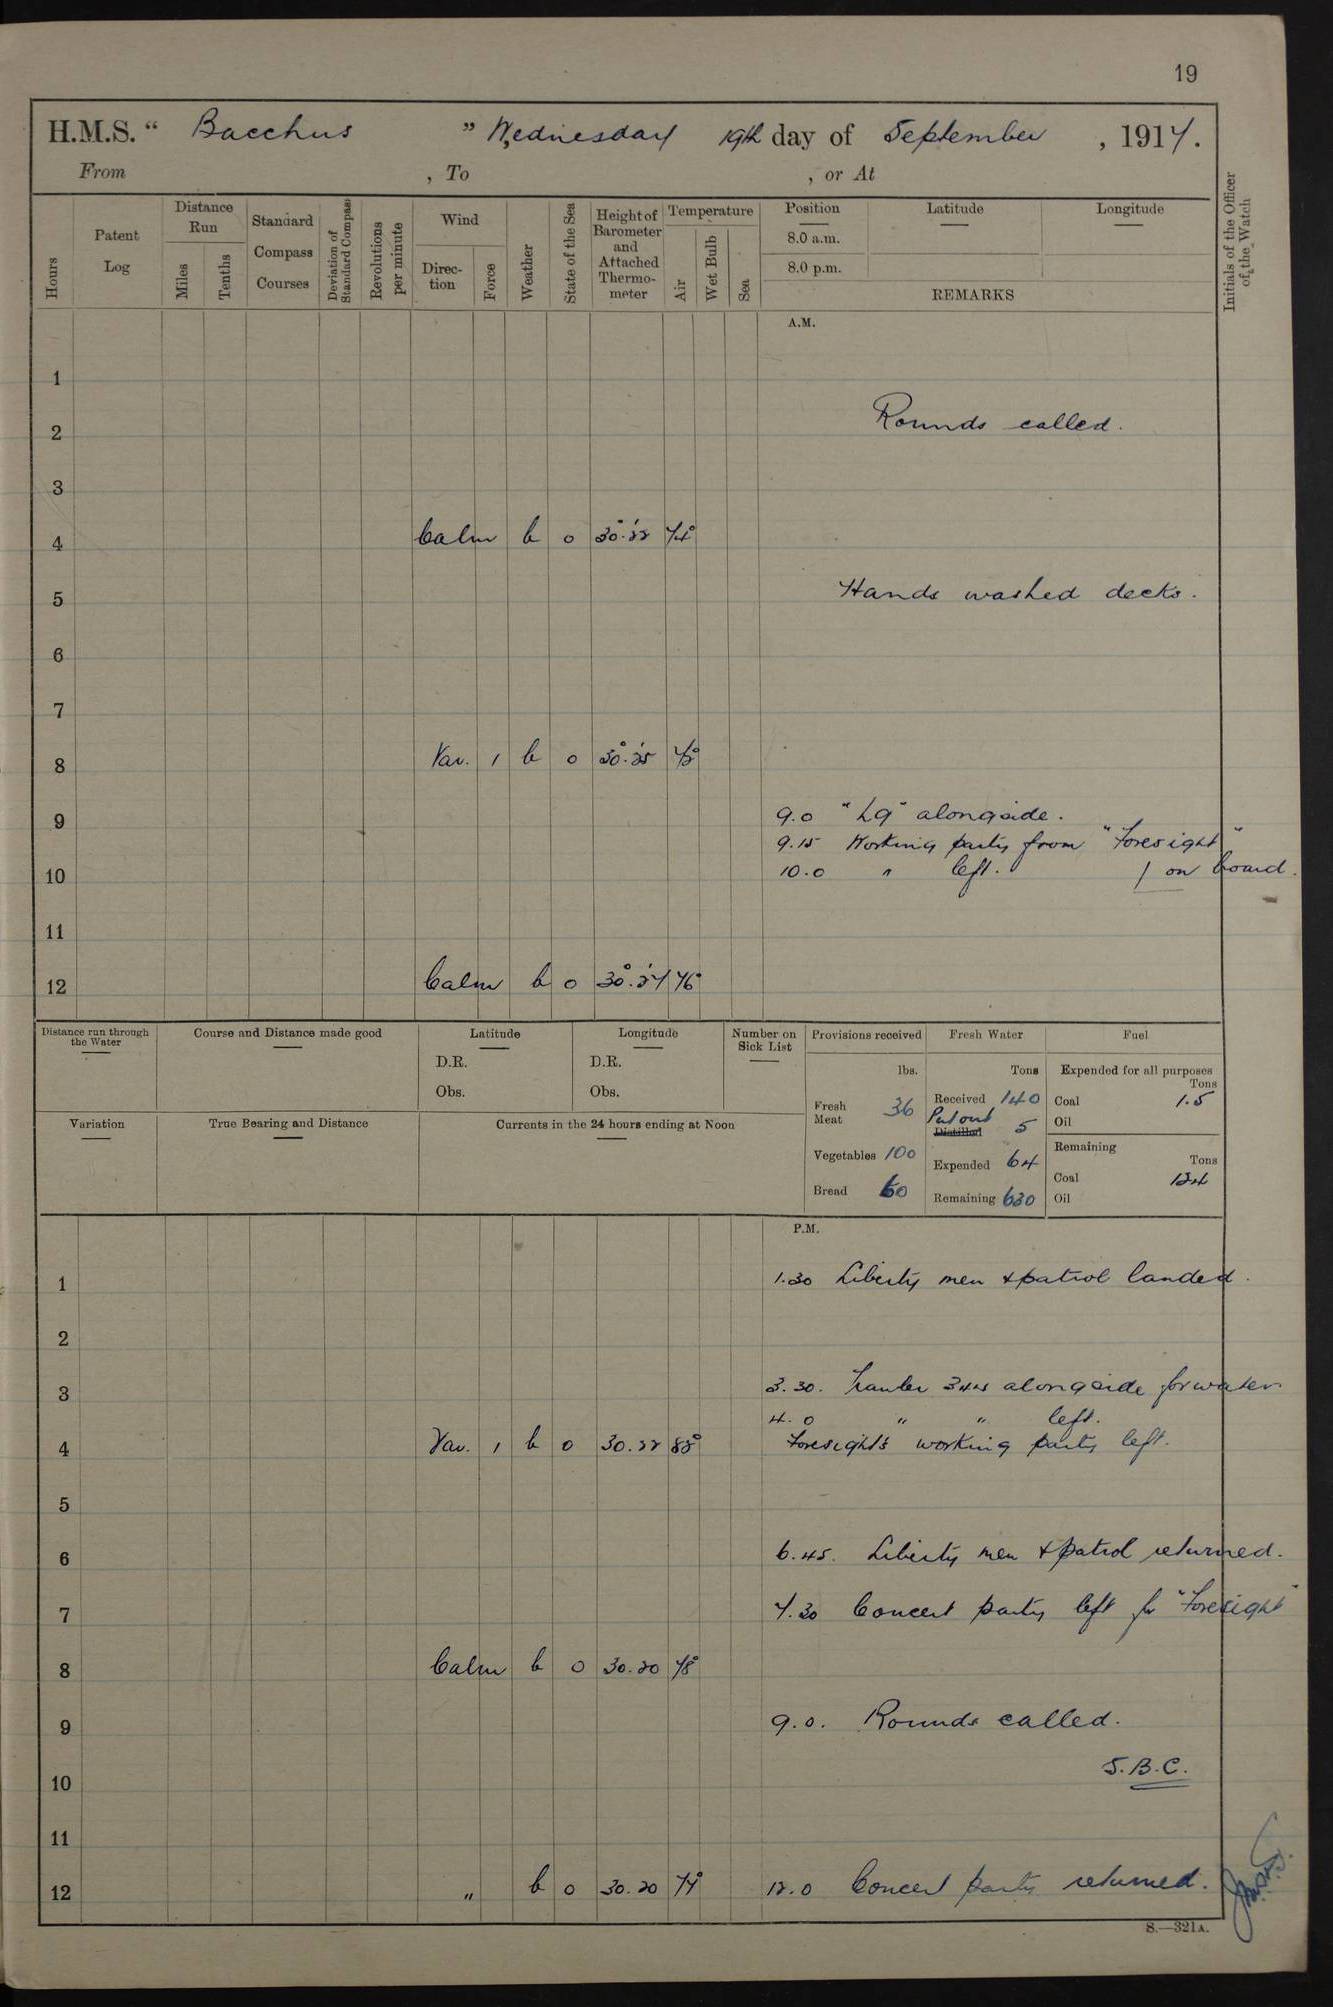 19
H.M.S. “ Bacchus ” Wednesday 19th day of September , 1917.
From , To , or At
Hours
Patent Log
Distance Run
Miles
Tenths
Standard Compass Courses
Deviation of Standard Compass
Revolutions per minute
Wind
Direc-tion
Force
Weather
State of the Sea
Height of Barometer and Attached Thermo-meter
Temperature
Air
Wet Bulb
Sea
Position
Latitude
Longitude
8.0 a.m.
8.0 p.m.
REMARKS
Initials of the Officer of the Watch
A.M.
1
Rounds called.
2
3
4 Calm b 0 30.22 74°
5 Hands washed decks.
6
7
8 Var. 1 b 0 30.25 72°
9.0 "L9" alongside.
9
9.15 Working party from "Foresight"
10 10.0 " left. / on board.
11
12 Calm b 0 30.27 76°
Distance run through the Water
Course and Distance made good
Latitude
D.R.
Obs.
Longitude
D.R.
Obs.
Number on Sick List
Provisions received
lbs.
Fresh Meat 36
Vegetables 100
Bread 60
Fresh Water
Tons
Received 140
Put out
Distilled 5
Expended 64
Remaining 630
Fuel
Expended for all purposes
Tons
Coal 1.5
Oil
Remaining
Tons
Coal 124
Oil
Variation
True Bearing and Distance
Currents in the 24 hours ending at Noon
P.M.
1 1.30 Liberty men & patrol landed.
2
3 3.30. Trawler alongside for water
4.0 " " left.
4 Var. 1 b 0 30.22 88° Foresight's working party left.
5
6 6.45. Liberty men & patrol returned.
7 7.30 Concert party left for "Foresight"
8 Calm b 0 30.20 78°
9 9.0. Rounds called.
S.B.C.
10
11
12 " b 0 30.20 77° 12.0 Concert party returned.
S.—321A.